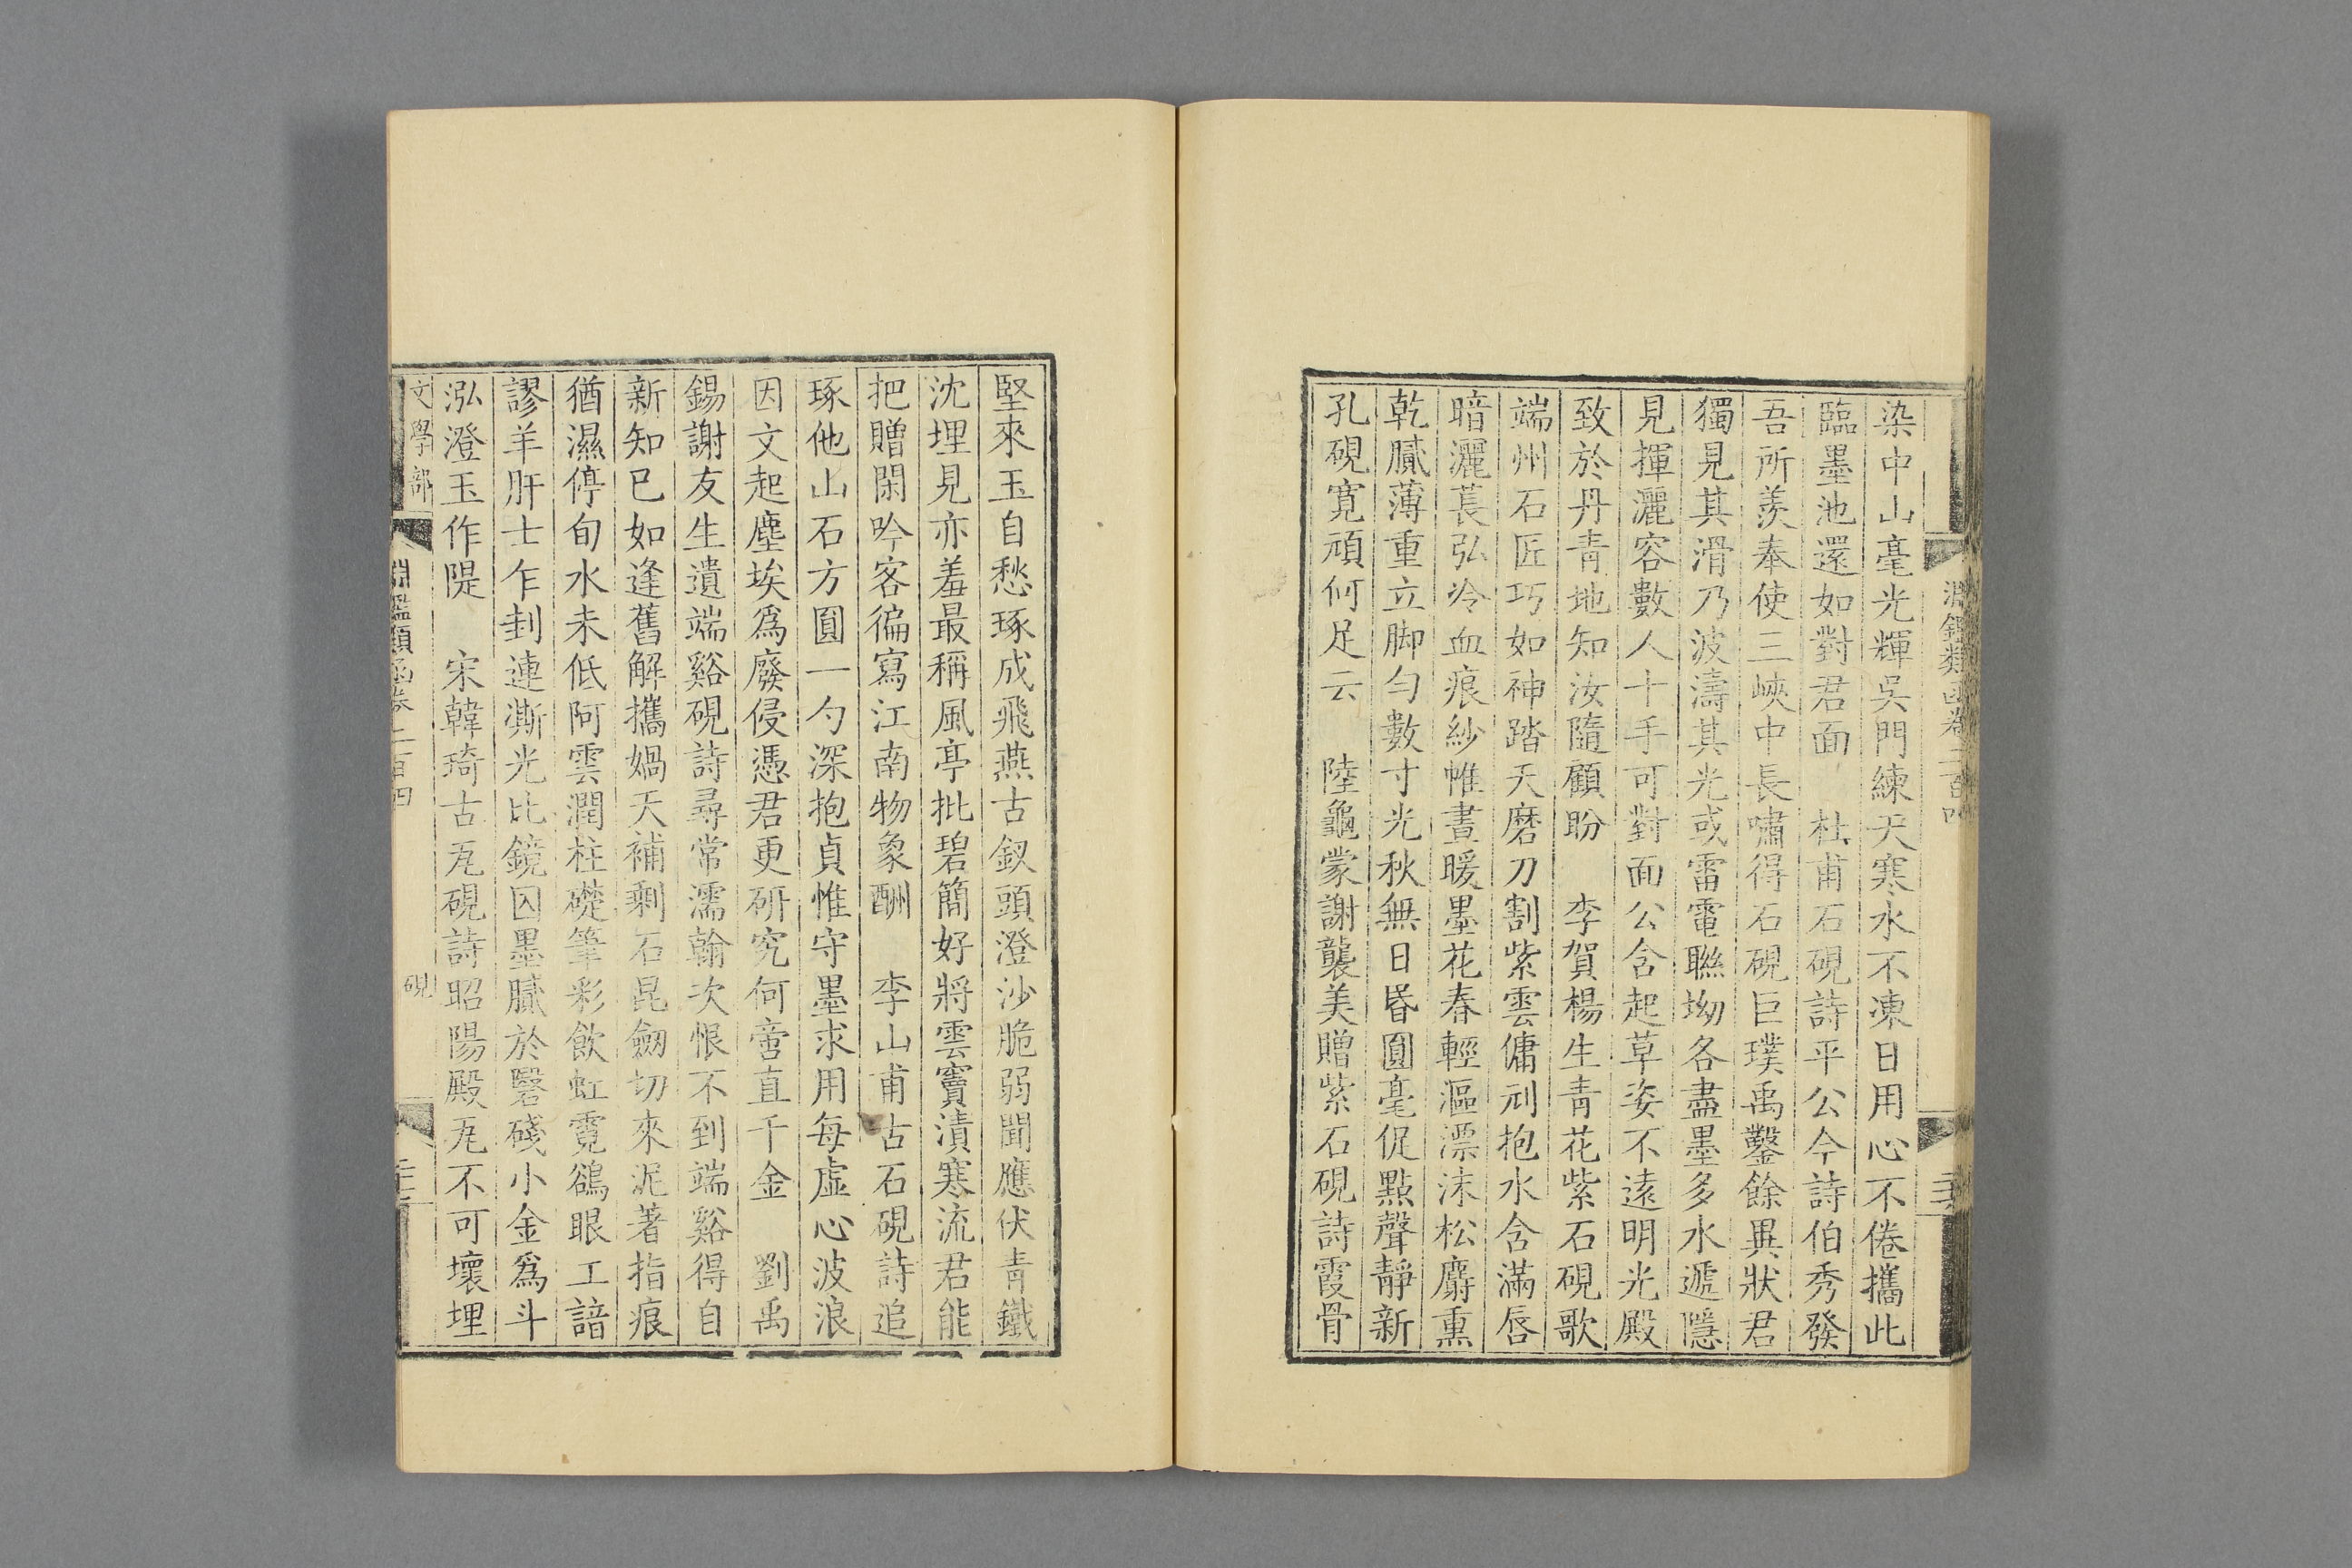 淵鑑類函卷二百四
染中山毫光輝吳門練天寒水不凍日用心不倦攜此
臨墨池還如對君面　杜甫石硯詩平公今詩伯秀發
吾所羨奉使三峽中長嘯得石硯巨璞禹鑿餘異狀君
獨見其滑乃波濤其光或雷電聯坳各盡墨多水遞隱
見揮灑容數人十手可對面公含起草姿不遠明光殿
致於丹青地知汝隨顧盼　李賀楊生青花紫石硯歌
端州石匠巧如神踏天磨刀割紫雲傭刓抱水含滿唇
暗灑萇弘冷血痕紗帷晝暖墨花春輕漚漂沫松麝熏
乾膩薄重立脚勻數寸光秋無日昏圓毫促點聲靜新
孔硯寬頑何足云　陸龜蒙謝襲美贈紫石硯詩霞骨
堅來玉自愁琢成飛燕古釵頭澄沙脆弱聞應伏青鐵
沈埋見亦羞最稱風亭批碧簡好將雲竇漬寒流君能
把贈閑吟客徧寫江南物象酬　李山甫古石硯詩追
琢他山石方圓一勺深抱貞惟守墨求用每虛心波浪
因文起塵埃為廢侵憑君更研究何啻直千金　劉禹
錫謝友生遺端谿硯詩尋常濡翰次恨不到端谿得自
新知已如逢舊解攜媧天補剩石昆劒切來泥著指痕
猶濕停旬水未低阿雲潤柱礎筆彩飲虹霓鵒眼工諳
謬羊肝士乍刲連澌光比鏡囚墨膩於瑿磢小金為斗
泓澄玉作隄　宋韓琦古瓦硯詩昭陽殿瓦不可壞埋
文學部　淵鑑類函卷二百四　硯